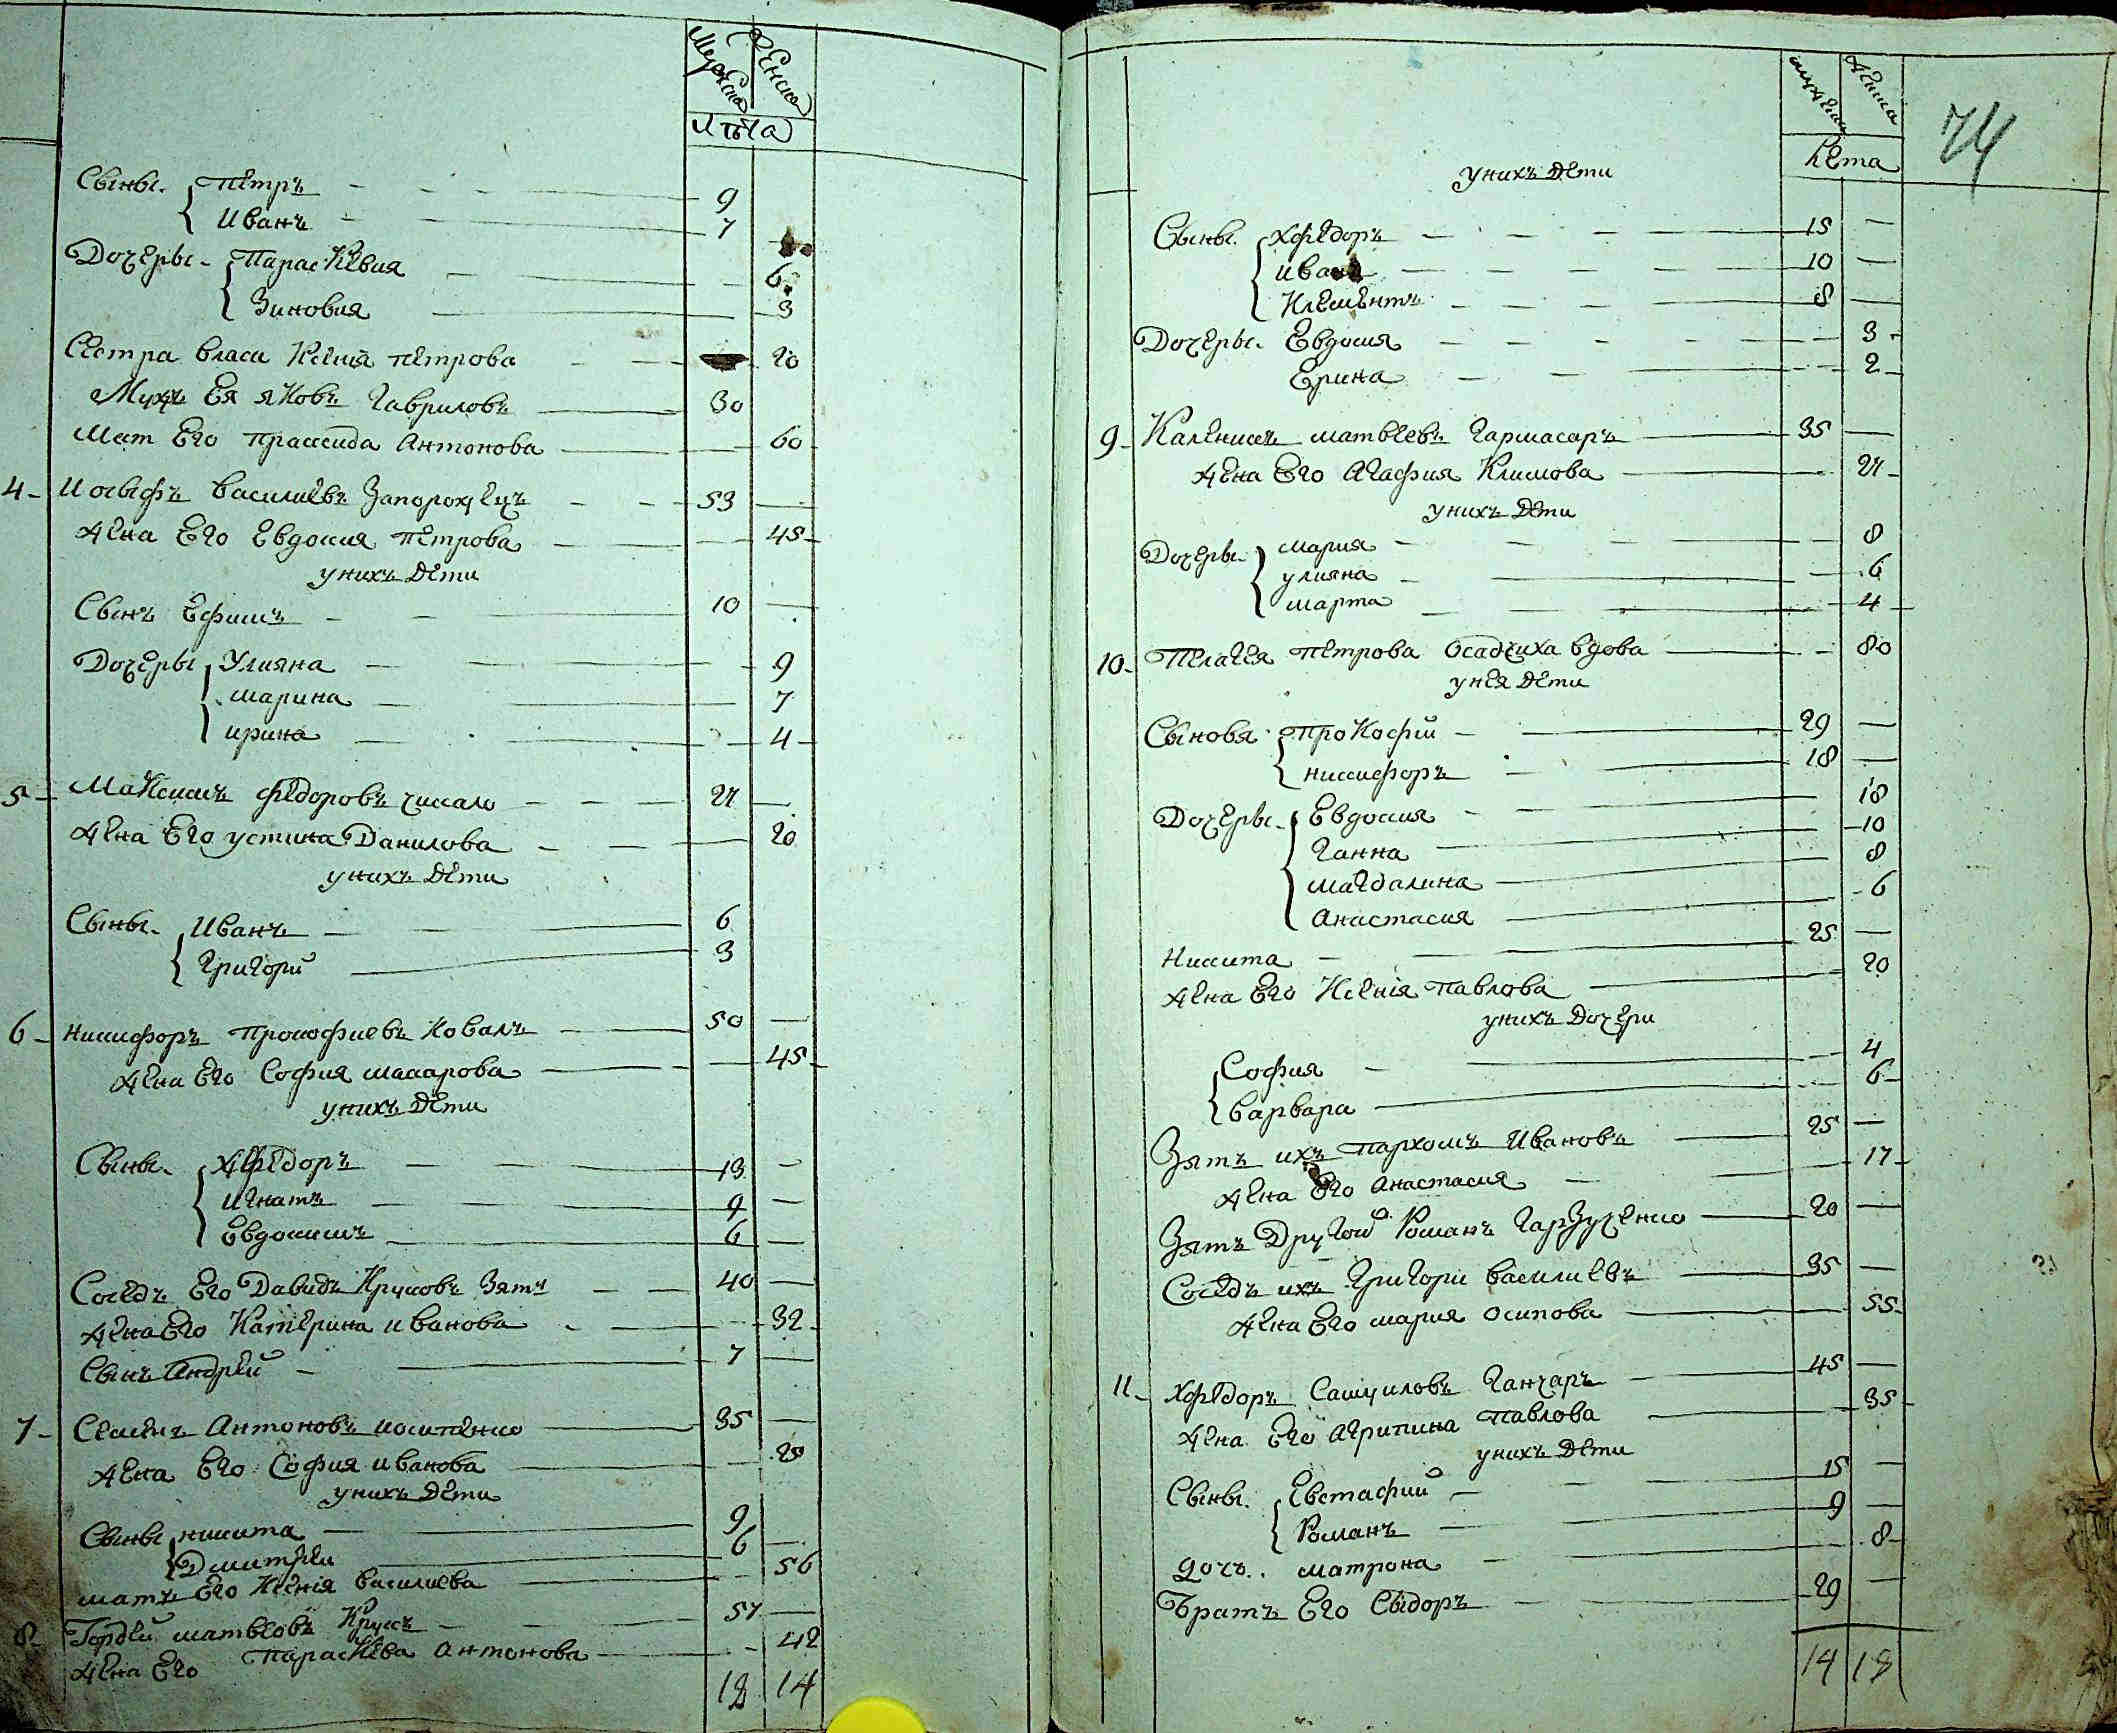 Мужеска Женска
лѣта
Сыны. Петръ 9
Иванъ 7
Дочеры Параскѣвия 6
Зиновия 3
Сестра власи Ксенія петрова 20
Мужъ Ея яковъ Гавриловъ 30
Мат Его прассида Антонова 60
4 Иосыфъ василиевъ Запорожецъ 53
Жена Его Евдокия петрова 45
унихъ Дети
Сынъ Ефимъ 10
Дочеры Улияна 9
марина 7
ирина 4
5 Максимъ федоровъ 27
Жена Его устина Данилова 20
унихъ Дети
Сыны Иванъ 6
Григори 3
6 никифоръ Прокофиевъ Ковалъ 50
Жена Его София макарова 45
унихъ Дети
Сыны Хфедоръ 13
игнатъ 9
Евдокимъ 6
Соседъ Его Давидъ Зятъ 40
Жена Его Катерина иванова 32
Сынъ Андрей 7
7 Семенъ Антоновъ 35
Жена Его София иванова 28
унихъ Дети
Сыны никита 9
Дмитрей 6
матъ Его Ксенія василиева 56
8 Гордей матвеовъ 57
Жена Его параскева антонова 42
18 14
мужеска Женска
74
лета
унихъ Дети
Сыны. Хфедоръ 15
иванъ 10
Климентъ 8
Дочеры. Евдокия 3
Ерина 2
9 Каленикъ матвеевъ Гармасаръ 35
Жена Его Агафия Климова 27
унихъ Дети
Дочеры. мария 8
улияна 6
марта 4
10 Пелагея петрова осадчиха вдова 80
унея Дети
Сыновя Прокофий 29
никифоръ 18
Дочеры. Евдокия 18
Ганна 10
магдалина 8
анастасия 6
Никита 25
Жена Его Ксенія павлова 20
унихъ Дочери
София 4
варвара 6
Зятъ ихъ пархомъ Ивановъ 25
Жена Его анастасия 17
Зятъ Другой Романъ 20
Соседъ ихъ Григори василиевъ 35
Жена Его мария осипова 55
11 Хфедоръ Самуиловъ Ганчаръ 45
Жена Его агрипина павлова 35
унихъ Дети
Сыны. Евстафий 15
Романъ 9
дочъ. матрона 8
Братъ Его Сыдоръ 29
14 18